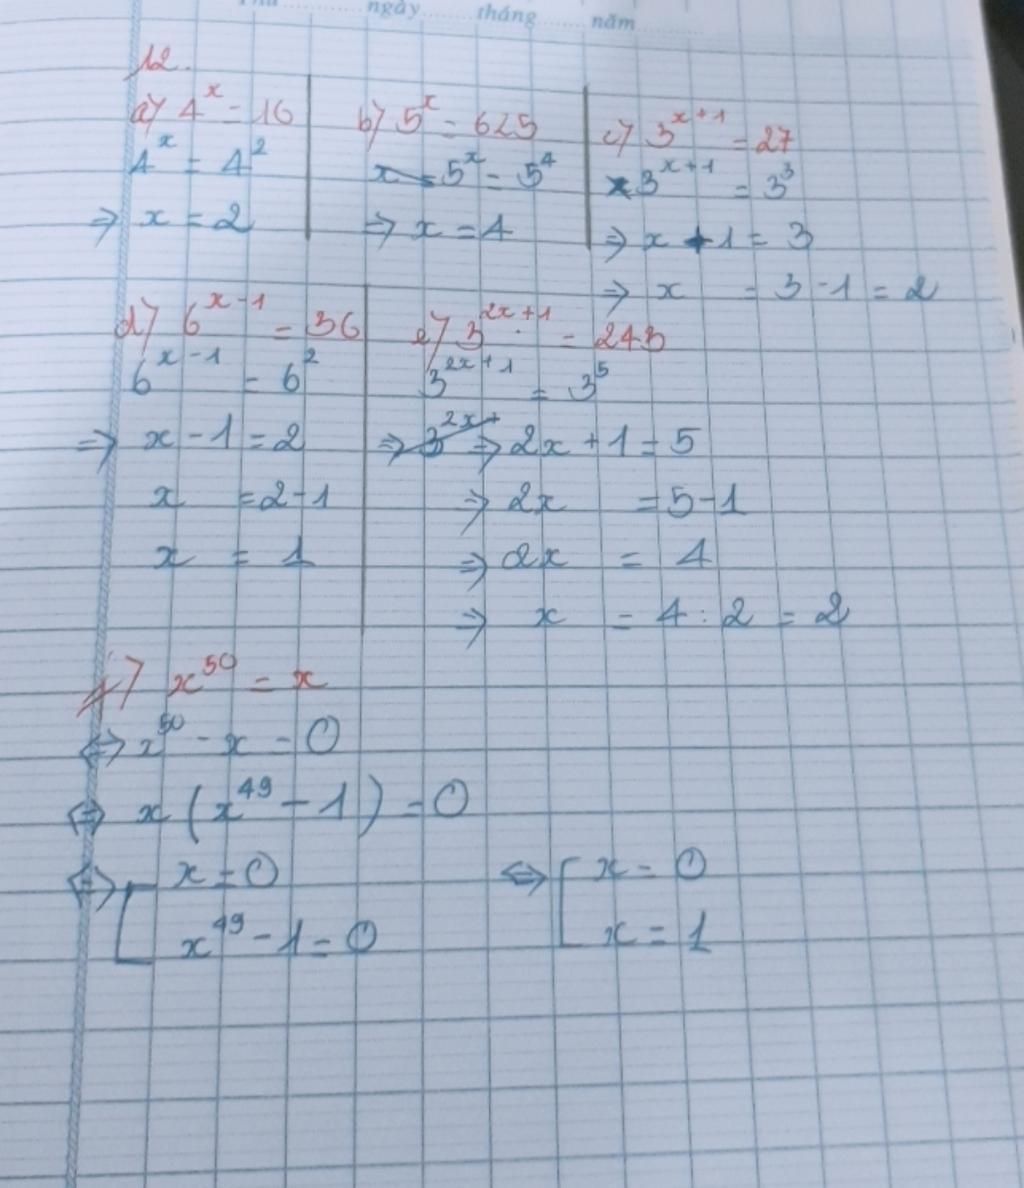 ngày tháng năm
12.
a) 4^x = 16
4^x = 4^2
=> x = 2
b) 5^x = 625
5^x = 5^4
=> x = 4
c) 3^{x+1} = 27
3^{x+1} = 3^3
=> x + 1 = 3
=> x = 3 - 1 = 2
d) 6^{x-1} = 36
6^{x-1} = 6^2
=> x - 1 = 2
x = 2 - 1
x = 1
e) 3^{2x+1} = 243
3^{2x+1} = 3^5
=> 2x + 1 = 5
=> 2x = 5 - 1
=> 2x = 4
=> x = 4 : 2 = 2
f) x^{50} = x
<=> x^{50} - x = 0
<=> x (x^{49} - 1) = 0
<=> [ x = 0
x^{49} - 1 = 0
<=> [ x = 0
x = 1